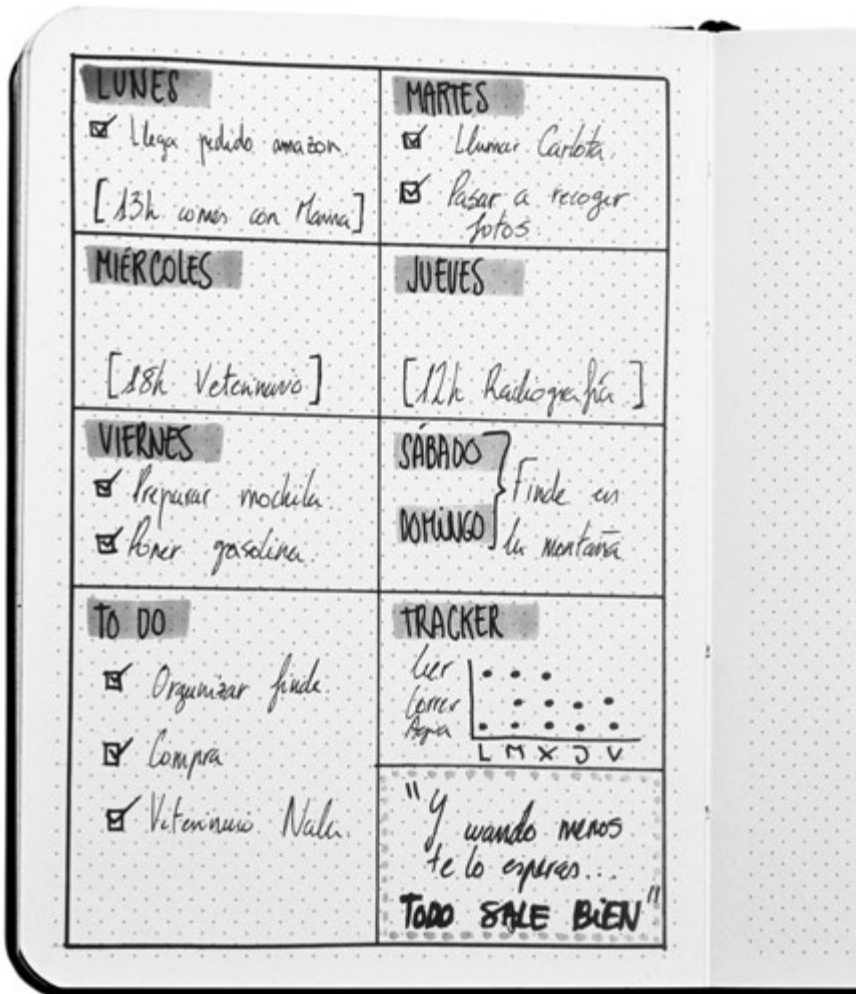 LUNES
Llega pedido amazon.
[13h comer con Marina]
MARTES
Llamar Carlota.
Pasar a recoger
fotos.
MIÉRCOLES
[18h Veterinario]
JUEVES
[12h Radiografía]
VIERNES
Preparar mochila.
Poner gasolina.
SÁBADO
DOMINGO
Finde en
la montaña
TO DO
Organizar finde.
Compra
Veterinario Nala.
TRACKER
Leer
Correr
Agua
L M X J V
"Y cuando menos
te lo esperas...
TODO SALE BIEN"